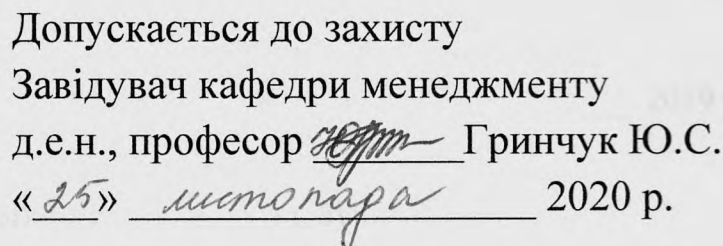 Допускається до захисту
Завідувач кафедри менеджменту
д.е.н., професор ______ Гринчук Ю.С.
«25» листопада 2020 р.